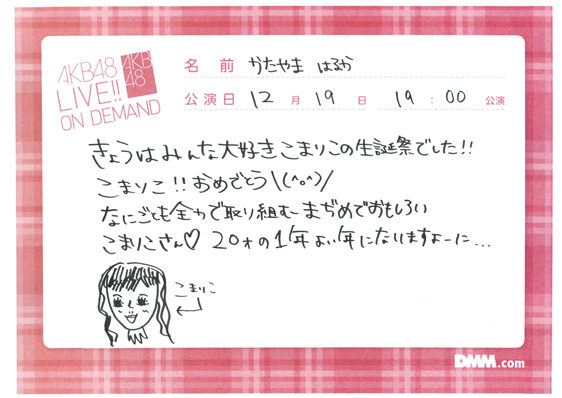 AKB48
LIVE!!
ON DEMAND
AKB
48
名前 かたやま はるか
公演日 12月19日 19:00公演
きょうはみんな大好きこまりこの生誕祭でした!!
こまりこ!!おめでとう\(^o^)/
なにごとも全力で取り組むまぢめでおもしろい
こまりこさん♡ 20才の1年よい年になりますよーに...
こまりこ
DMM.com